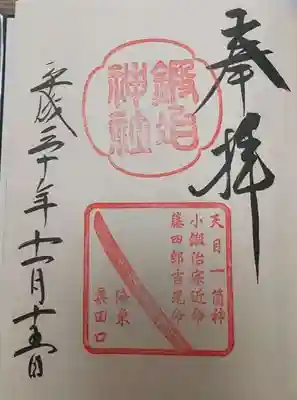 奉拝
鍛冶神社
天目一箇神
小鍛冶宗近命
藤四郎吉光命
海東
粟田口
平成三十年十一月十五日